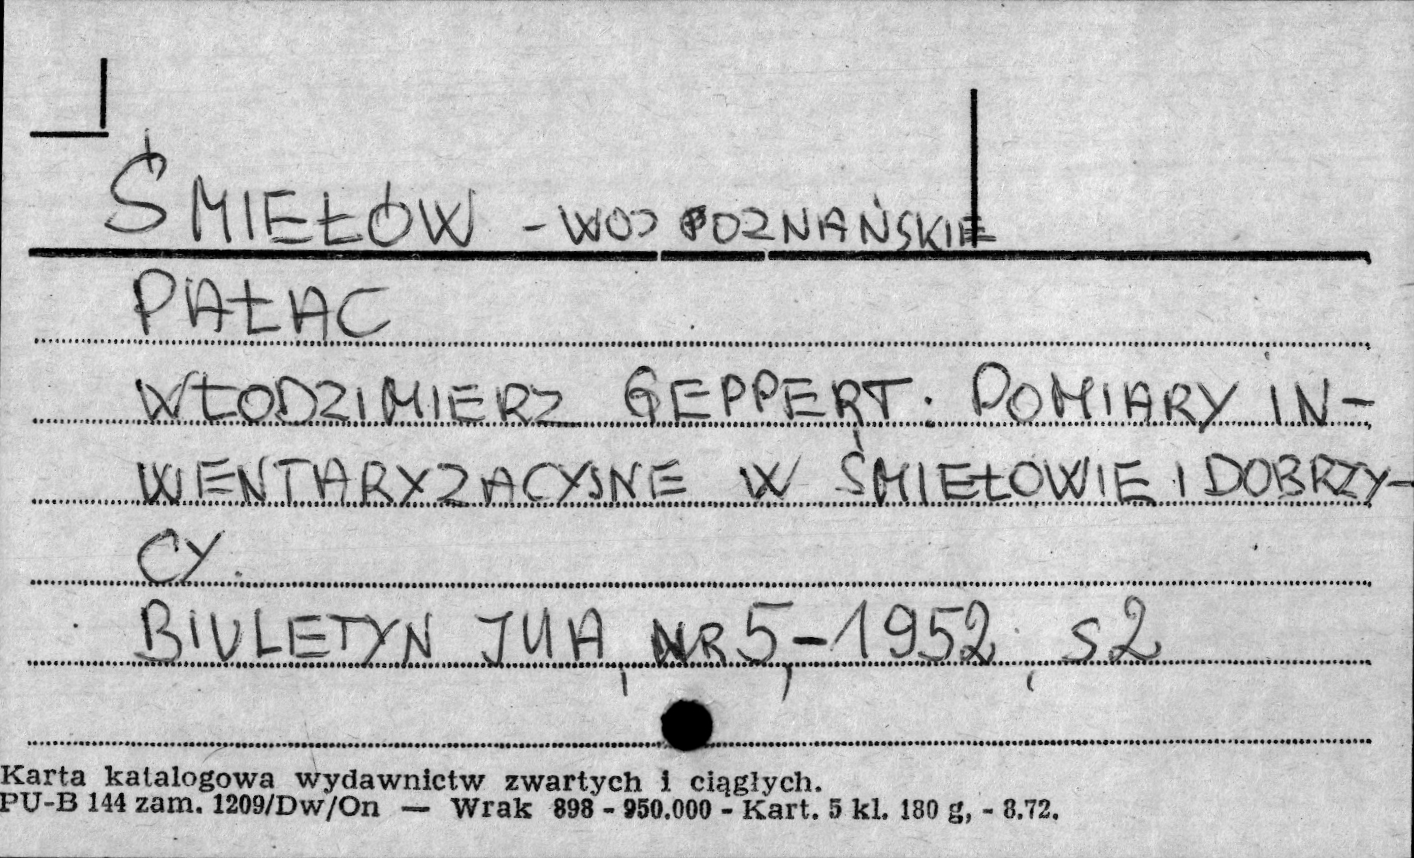 ŚMIEŁÓW - WOJ POZNAŃSKIE
PAŁAC
WŁODZIMIERZ GEPPERT: POMIARY IN-
WENTARYZACYJNE W ŚMIEŁOWIE I DOBRZY-
CY.
BIULETYN JUA, NR 5, - 1952, S 2
Karta katalogowa wydawnictw zwartych i ciągłych.
PU-B 144 zam. 1209/Dw/On — Wrak 898 - 950.000 - Kart. 5 kl. 180 g, - 8.72.